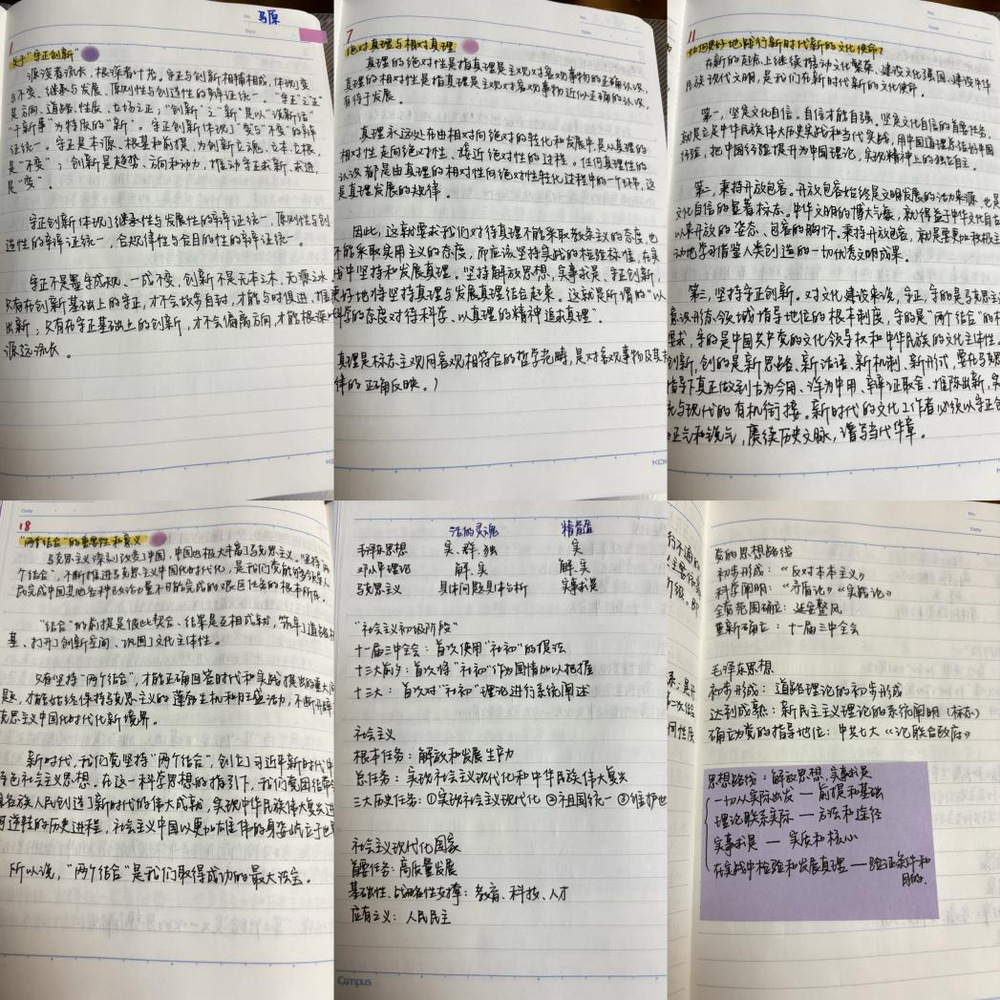 马原
1
对"守正创新"
源浚者流长，根深者叶茂。守正与创新相辅相成，体现变
与不变、继承与发展、原则性与创造性的辩证统一。"守正"之"正"
是方向、道路、性质、立场之正；"创新"之"新"是以"谈新话"
"干新事"为特质的"新"。守正创新体现了"变"与"不变"的辩
证统一。守正是本源、根基和前提，为创新立魂、立本、立根，
是"不变"；创新是趋势、方向和动力，推动守正求新、求进，
是"变"。
守正创新体现了继承性与发展性的辩证统一，原则性与创
造性的辩证统一、合规律性与合目的性的辩证统一。
守正不是墨守成规、一成不变，创新不是无本之木、无源之水
只有在创新基础上的守正，才不会故步自封，才能与时俱进、推陈
出新；只有在守正基础上的创新，才不会偏离方向，才能根深
源远流长。
7
绝对真理与相对真理
真理的绝对性是指真理是主观对客观事物的正确认识，
真理的相对性是指真理是主观对客观事物近似正确的认识，
有待于发展。
真理永远处在由相对向绝对的转化和发展中，是从真理的
相对性走向绝对性、接近绝对性的过程。任何真理性的
认识都是由真理的相对性向绝对性转化过程中的一个环节，这
是真理发展的规律。
因此，这就要求我们对待真理不能采取教条主义的态度，也
不能采取实用主义的态度，而应该坚持实践的检验标准，在实
践中坚持和发展真理。坚持解放思想、实事求是、守正创新，
更好地将坚持真理与发展真理结合起来。这就是所谓的"以
科学的态度对待科学、以真理的精神追求真理"。
真理是标志主观同客观相符合的哲学范畴，是对客观事物及其
律的正确反映。）
11
如何更好地践行新时代新的文化使命？
在新的起点上继续推动文化繁荣、建设文化强国、建设中华
民族现代文明，是我们在新时代新的文化使命。
第一，坚定文化自信。自信才能自强。坚定文化自信的首要任务，
就是立足中华民族伟大历史实践和当代实践，用中国道理总结好中国
经验，把中国经验提升为中国理论，实现精神上的独立自主。
第二，秉持开放包容。开放包容始终是文明发展的活力来源，也是
文化自信的显著标志。中华文明的博大气象，就得益于中华文化自古
以来开放的姿态、包容的胸怀。秉持开放包容，就是要更加积极主
动地学习借鉴人类创造的一切优秀文明成果。
第三，坚持守正创新。对文化建设来说，守正，守的是马克思主义
意识形态领域指导地位的根本制度，守的是"两个结合"的根
要求，守的是中国共产党的文化领导权和中华民族的文化主体性。
创新，创的是新思路、新话语、新机制、新形式，要在马克思
指导下真正做到古为今用、洋为中用、辩证取舍、推陈出新，实
元与现代的有机衔接。新时代的文化工作者必须以守正创
的正气和锐气，赓续历史文脉，谱写当代华章。
18
"两个结合"的重要性和意义
马克思主义深刻改变了中国，中国也极大丰富了马克思主义。坚持"两
个结合"，不断推进马克思主义中国化时代化，是我们党能够领导人
民完成中国其他各种政治力量不可能完成的艰巨任务的根本所在。
"结合"的前提是彼此契合、结果是互相成就，筑牢了道路根
基、打开了创新空间、巩固了文化主体性。
只有坚持"两个结合"，才能正确回答时代和实践提出的重大问
题，才能始终保持马克思主义的蓬勃生机和旺盛活力，不断开辟
克思主义中国化时代化新境界。
新时代，我们党坚持"两个结合"，创立了习近平新时代中
特色社会主义思想。在这一科学思想的指引下，我们党团结带
各族人民创造了新时代的伟大成就，实现中华民族伟大复
可逆转的历史进程，社会主义中国以更加雄伟的身姿屹立于世
所以说，"两个结合"是我们取得成功的最大法宝。
活的灵魂 精髓
毛泽东思想 实、群、独 实
邓小平理论 解、实 解、实
马克思主义 具体问题具体分析 实事求是
"社会主义初级阶段"
十一届六中全会：首次使用"社初"的提法
十三大前夕：首次将"社初"作为国情加以把握
十三大：首次对"社初"理论进行系统阐述
社会主义
根本任务：解放和发展生产力
总任务：实现社会主义现代化和中华民族伟大复兴
三大历史任务：①实现社会主义现代化 ②祖国统一 ③维护世
社会主义现代化国家
首要任务：高质量发展
基础性、战略性支撑：教育、科技、人才
应有之义：人民民主
Campus
党的思想路线
初步形成：《反对本本主义》
科学阐明：《矛盾论》《实践论》
全党范围确立：延安整风
重新确立：十一届三中全会
毛泽东思想
初步形成：道路理论的初步形成
达到成熟：新民主主义理论的系统阐明（标志）
确立为党的指导地位：中共七大《论联合政府》
思想路线：解放思想、实事求是
一切从实际出发 — 前提和基础
理论联系实际 — 方法和途径
实事求是 — 实质和核心
在实践中检验和发展真理 — 验证条件和
目的.